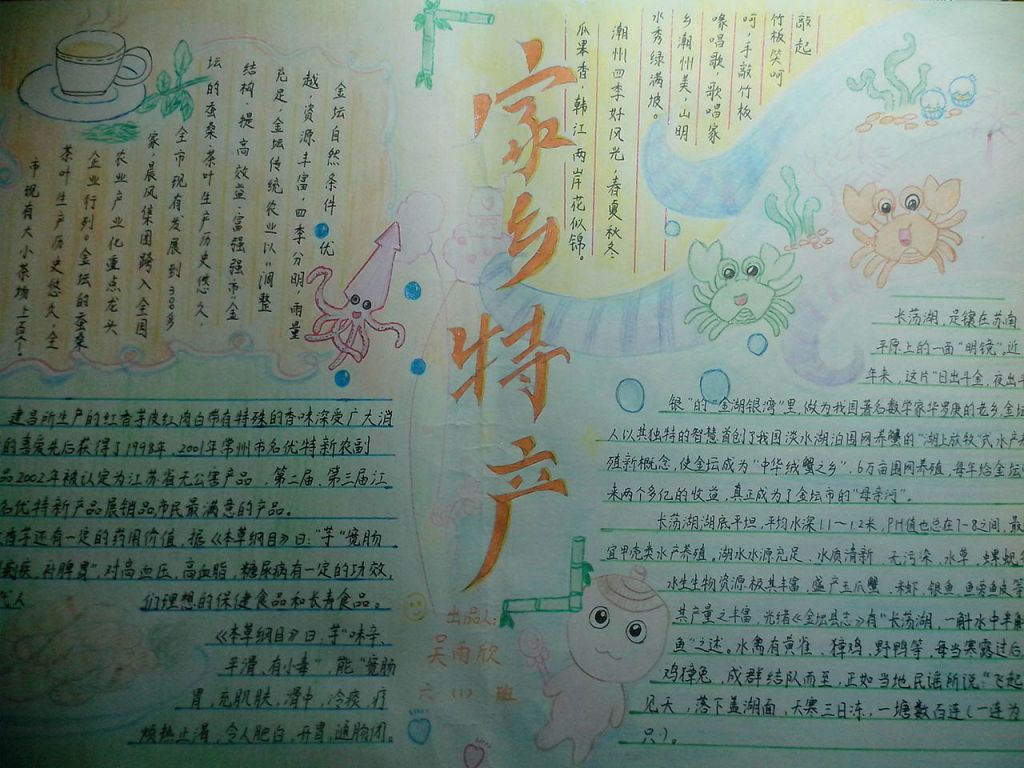 家乡特产
金坛自然条件优
越，资源丰富，四季分明，雨量
充足，金坛传统农业以"调整
结构、提高效益、富强强市"金
坛的蚕桑、茶叶生产历史悠久，
全市现有发展到38多
家，晨风集团跨入全国
农业产业化重点龙头
企业行列。金坛的蚕桑
茶叶生产历史悠久，全
市现有大小茶场上百个！
敲起
竹板笑呵
呵，手敲竹板
喙唱歌，歌唱家
乡潮州美，山明
水秀绿满坡。
潮州四季好风光，春夏秋冬
瓜果香，韩江两岸花似锦。
建昌所生产的红香芋皮红肉白带有特殊的香味深受广大消
的喜爱先后获得了1998年、2001年常州市名优特新农副
品2002年被认定为江苏省无公害产品，第二届、第三届江
名优特新产品展销品市民最满意的产品。
香芋还有一定的药用价值，据《本草纲目》曰："芋"宽肠
补脾胃"对高血压，高血脂，糖尿病有一定的功效，
代人 们理想的保健食品和长寿食品。
《本草纲目》曰，芋"味辛、
平滑、有小毒"，能"宽肠
胃，充肌肤，滑中，冷痰，疗
烦热止渴，令人肥白，开胃，通肠闭。
出品人：
吴雨欣
六（1）班
长荡湖，是镶在苏南
平原上的一面"明镜"。近
年来，这片"日出斗金，夜出斗
银"的"金湖银湾"里，做为我国著名数学家华罗庚的老乡，金坛
人以其独特的智慧首创了我国淡水湖泊围网养蟹的"湖上放牧"式水产养
殖新概念，使金坛成为"中华绒蟹之乡"，6万亩围网养殖，每年给金坛
来两个多亿的收益，真正成为了金坛市的"母亲河"。
长荡湖湖底平坦，平均水深1.1～1.2米，PH值也总在7-8之间，最
宜甲壳类水产养殖，湖水水源充足、水质清新，无污染，水草、螺蚬
水生生物资源极其丰富，盛产玉爪蟹、米虾、银鱼、鱼等
其产量之丰富，光绪《金坛县志》有"长荡湖，一斛水中半斛
鱼"之述。水禽有黄雀、獐鸡、野鸭等，每当寒露过后
鸡獐兔，成群结队而至，正如当地民谣所说："飞起
见天，落下盖湖面，大寒三日冻，一塘数百连（一连为
只）。